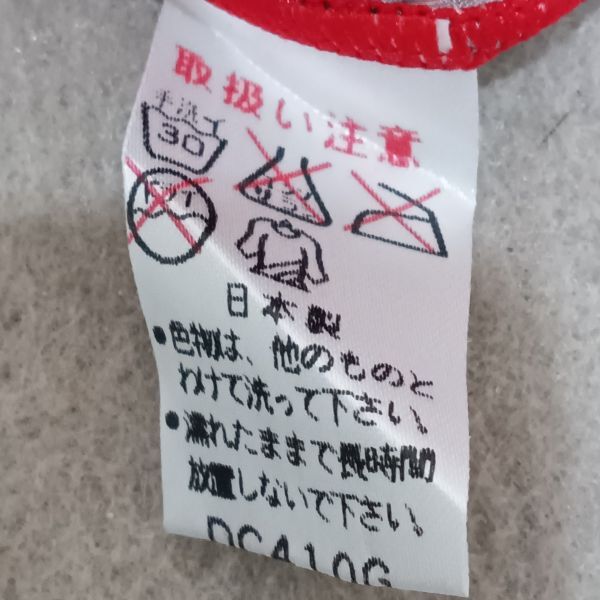 取扱い注意
手洗イ
30
エンソ
ドライ
日本製
●色物は、他のものと
わけて洗って下さい。
●濡れたままで長時間
放置しないで下さい。
DC410G